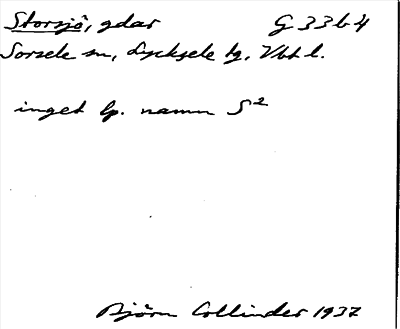 Storsjö, gdar G 33 b 4
Sorsele sn, Lycksele tg, Vbt l.
inget lp. namn S²
Björn Collinder 1937